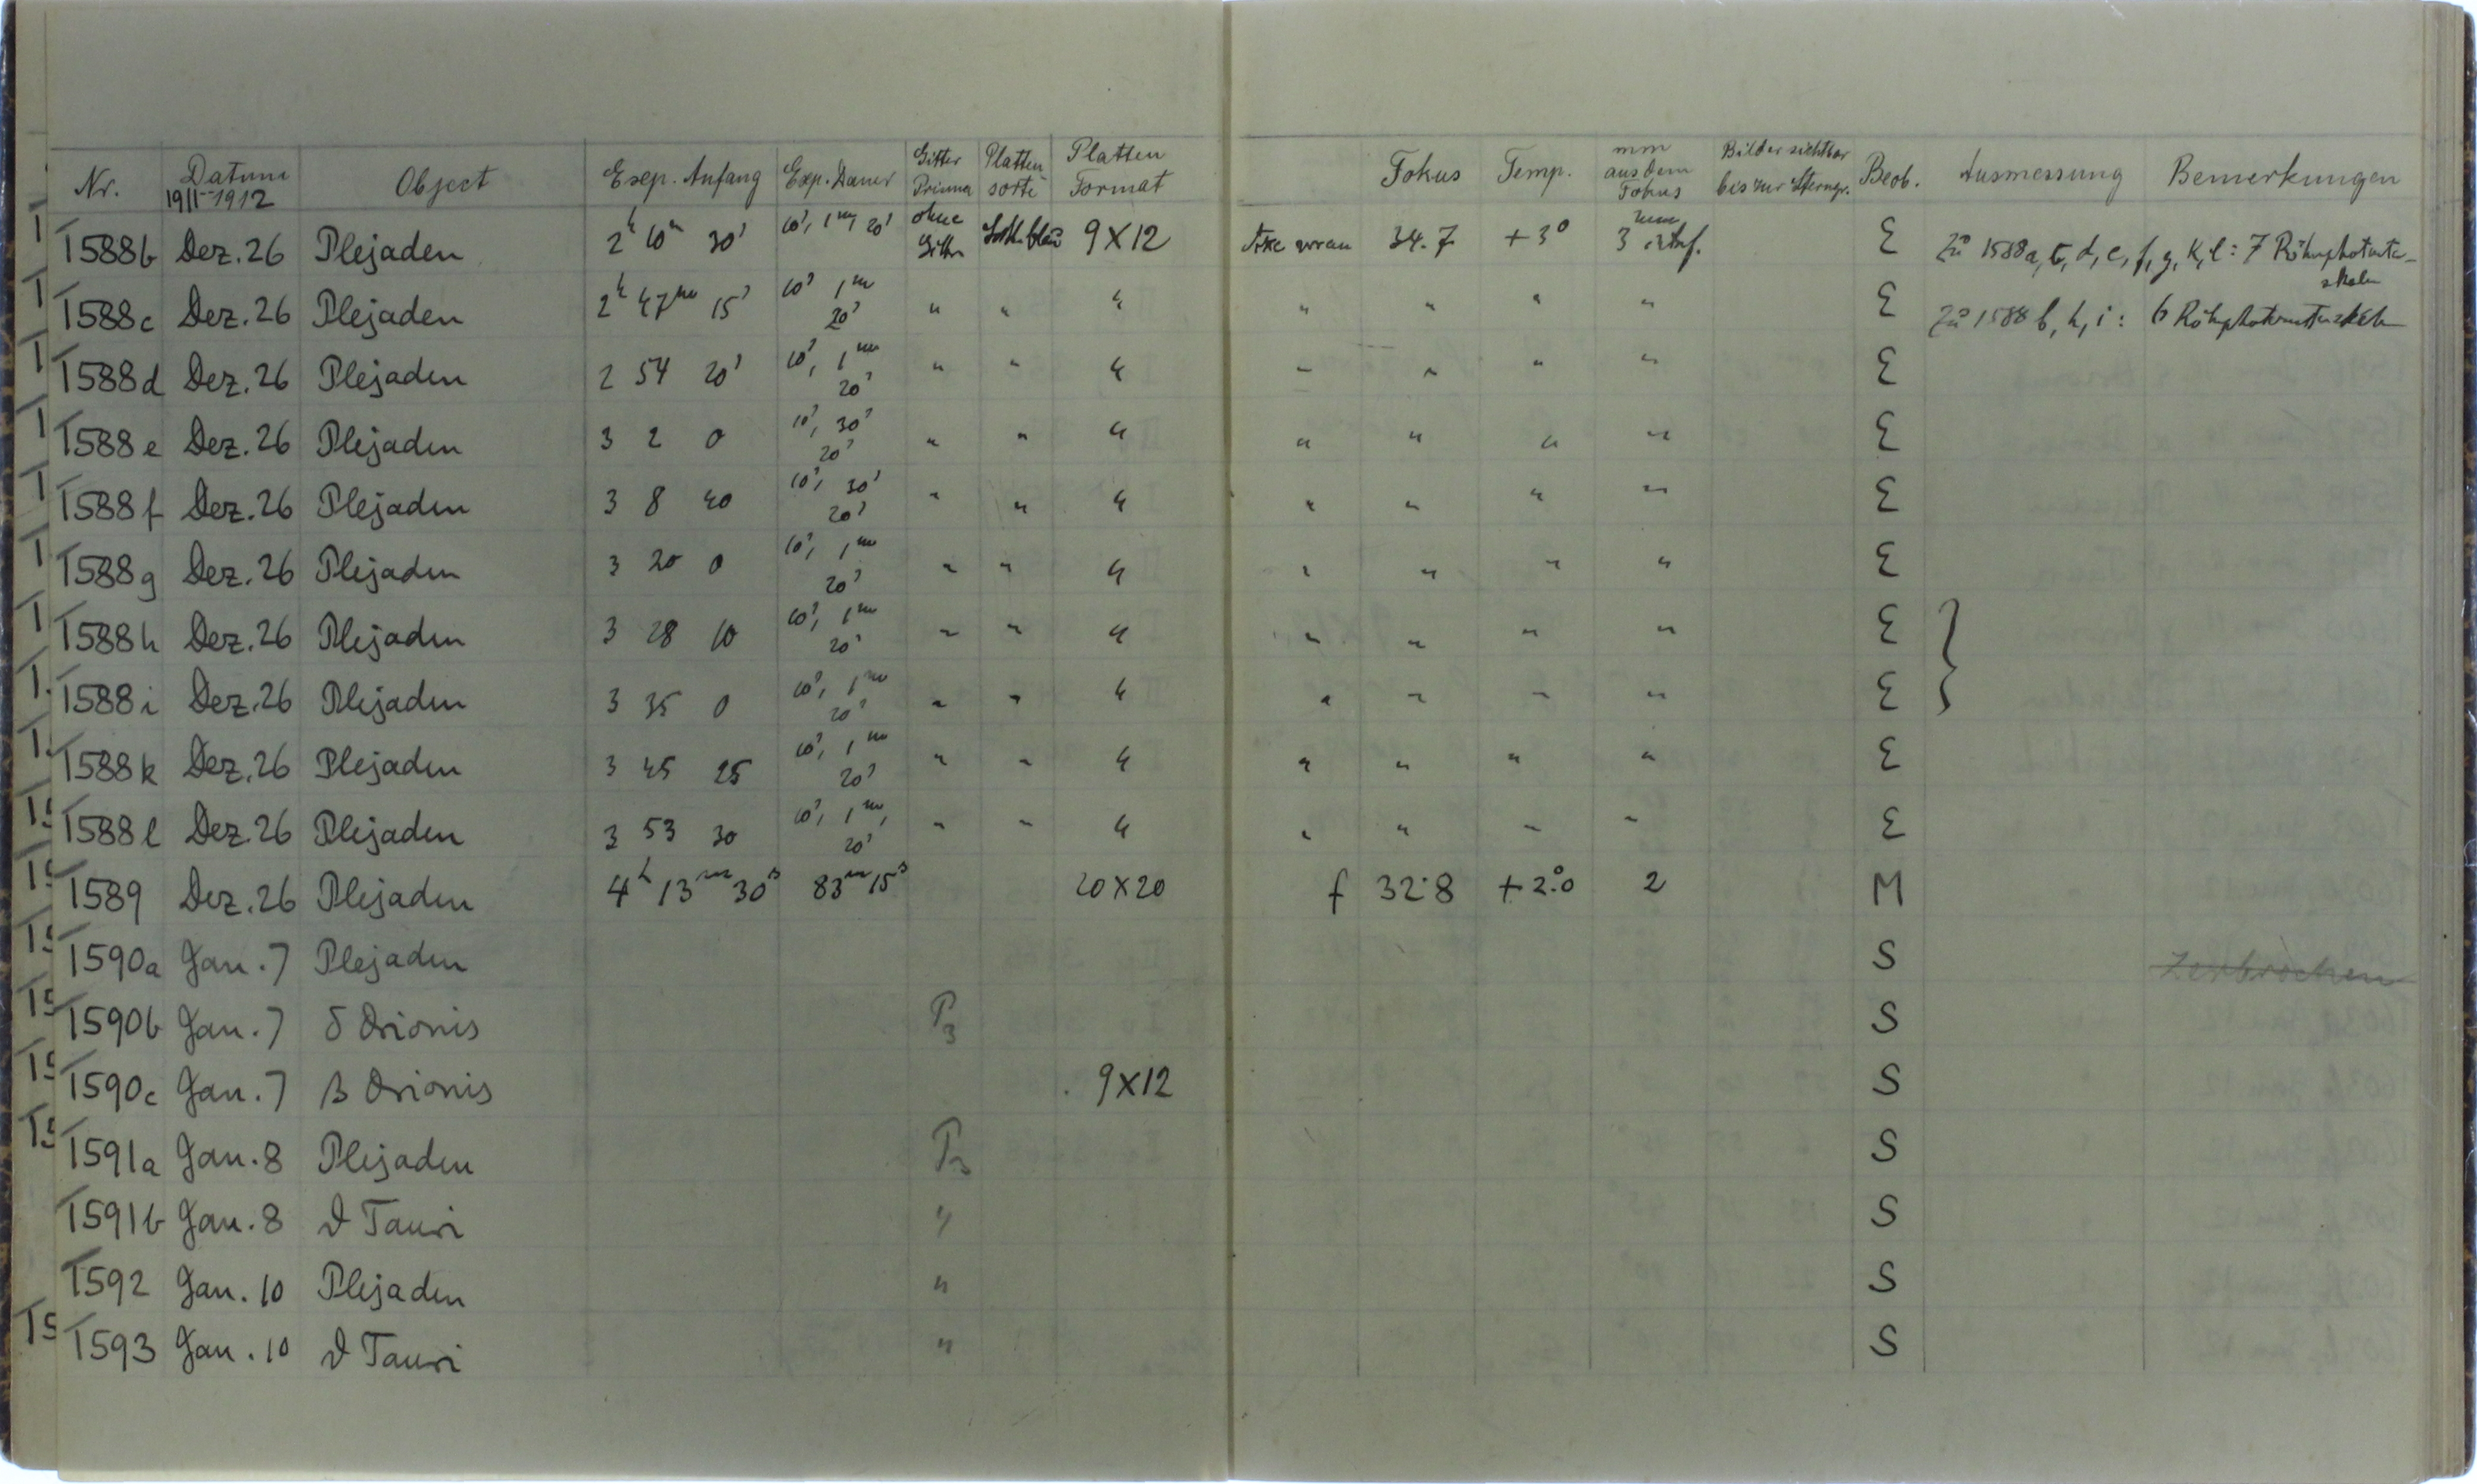 Nr. Datum 1911-1912 Object Exp. Anfang Exp. Dauer Gitter Prisma Platten-sorte Platten Format Fokus Temp. mm aus dem Fokus Bilder sichtbar bis zur Sterngr. Beob. Ausmessung Bemerkungen
1588b Dez. 26 Plejaden 2h 10m 30s 10s, 1m, 20s ohne Gitter 9X12 34.7 +3° 3 mm E Zu 1588a, d, e, f, g, k, l: 7
1588c Dez. 26 Plejaden 2h 47m 15s 10s 1m 20s " " " " " " " E Zu 1588 b, h, i: 6
1588d Dez. 26 Plejaden 2 54 20s 10s, 1m 20s " " " " " " " E
1588e Dez. 26 Plejaden 3 2 0 10s, 30s 20s " " " " " " " E
1588f Dez. 26 Plejaden 3 8 40 10s, 30s 20s " " " " " " " E
1588g Dez. 26 Plejaden 3 20 0 10s, 1m 20s " " " " " " " E
1588h Dez. 26 Plejaden 3 28 10 10s, 1m 20s " " " " " " " E
1588i Dez. 26 Plejaden 3 35 0 10s, 1m 20s " " " " " " " E
1588k Dez. 26 Plejaden 3 45 25 10s, 1m 20s " " " " " " " E
1588l Dez. 26 Plejaden 3 53 30 10s, 1m, 20s " " " " " " " E
1589 Dez. 26 Plejaden 4h 13m 30s 83m 15s 20X20 f 32.8 +2.°0 2 M
1590a Jan. 7 Plejaden S Zerbrochen
1590b Jan. 7 δ Orionis P3 S
1590c Jan. 7 β Orionis 9X12 S
1591a Jan. 8 Plejaden P3 S
1591b Jan. 8 ϑ Tauri " S
1592 Jan. 10 Plejaden " S
1593 Jan. 10 ϑ Tauri " S